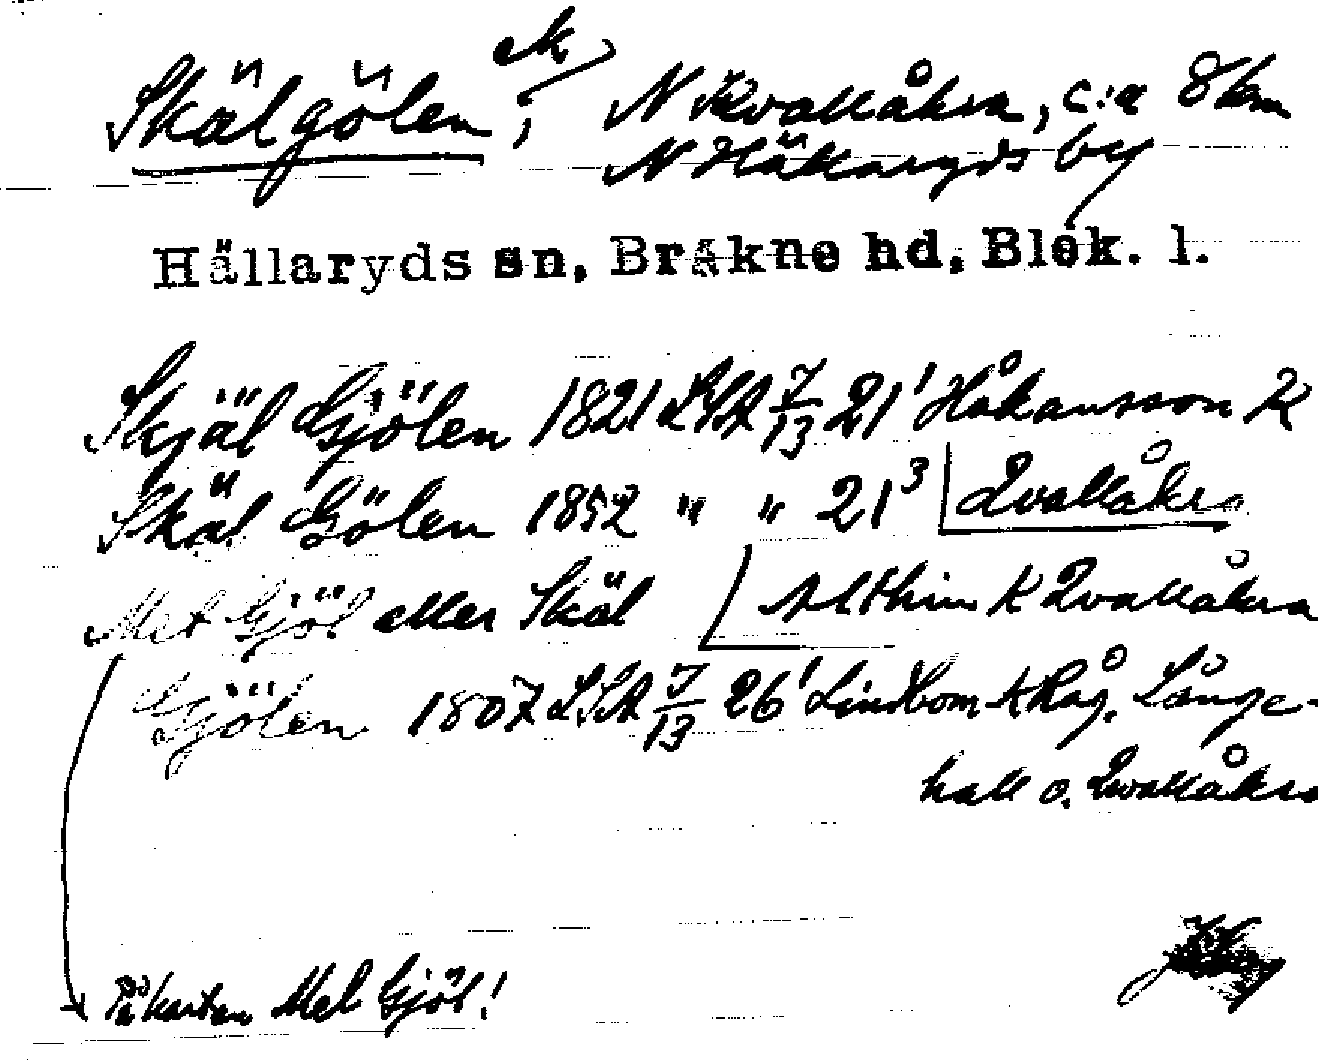 Skälgölen, N Kvallåkra, c:a 8 km
N Hällaryds by
Hällaryds sn, Bräkne hd, Blek. l.
Skjäl Gjölen 1821 LSA 7/13 21¹ Håkansson K
Skäl Gölen 1852 " " 21³ Qvallåkra
Met Gjöl eller Skäl Althin K Qvallåkra
Gjölen 1807 LSA 7/13 26¹ Lindbom Långe-
hall o. Qvallåkra
På kartan Met Gjöl!